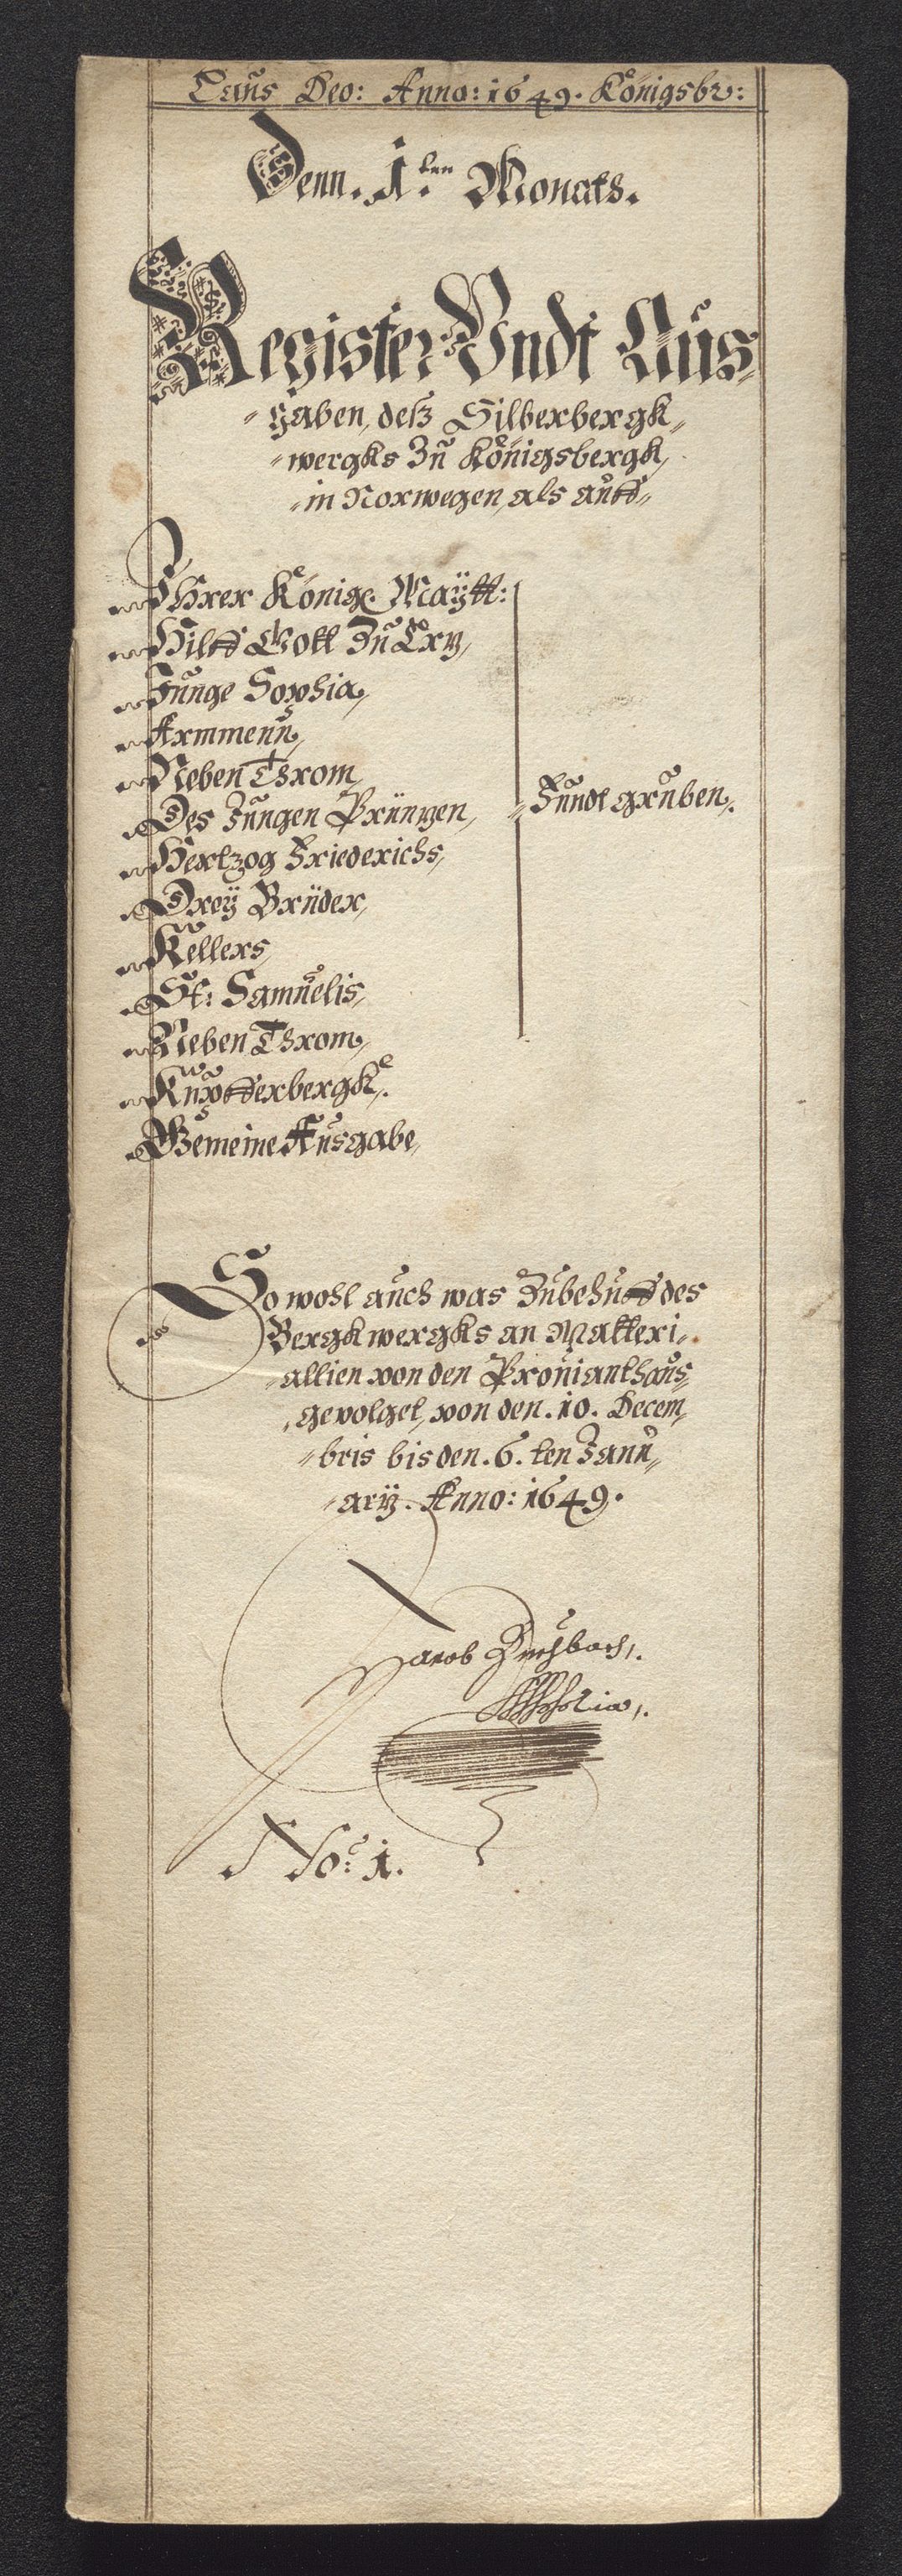 Laus Deo: Anno: 1649. Königsbr:
Denn. 1.ten Monats.
Register Undt Aus-
gaben, deß Silberbergk-
wergks Zu Königsbergk,
in Norwegen, als auff
Ihrer Königl. Maÿtt:
Hilff Gott Zu Ertz,
Junge Sophia,
Armmenn,
Neben Throm,
Des Jungen Printzen,
Fundtgruben.
Hertzog Friederichs,
Dreÿ Brüder,
Kellers,
St: Samuelis,
Neben Throm,
Kupfferbergk.
Gemeine Ausgabe,
So wohl auch was Zubehuff des
Bergkwergks an Matteri-
allien von den Provianthaus
gevolget, von den. 10. Decem-
bris bis den. 6.ten Janu-
arÿ. Anno: 1649.
Jacob
No: 1.